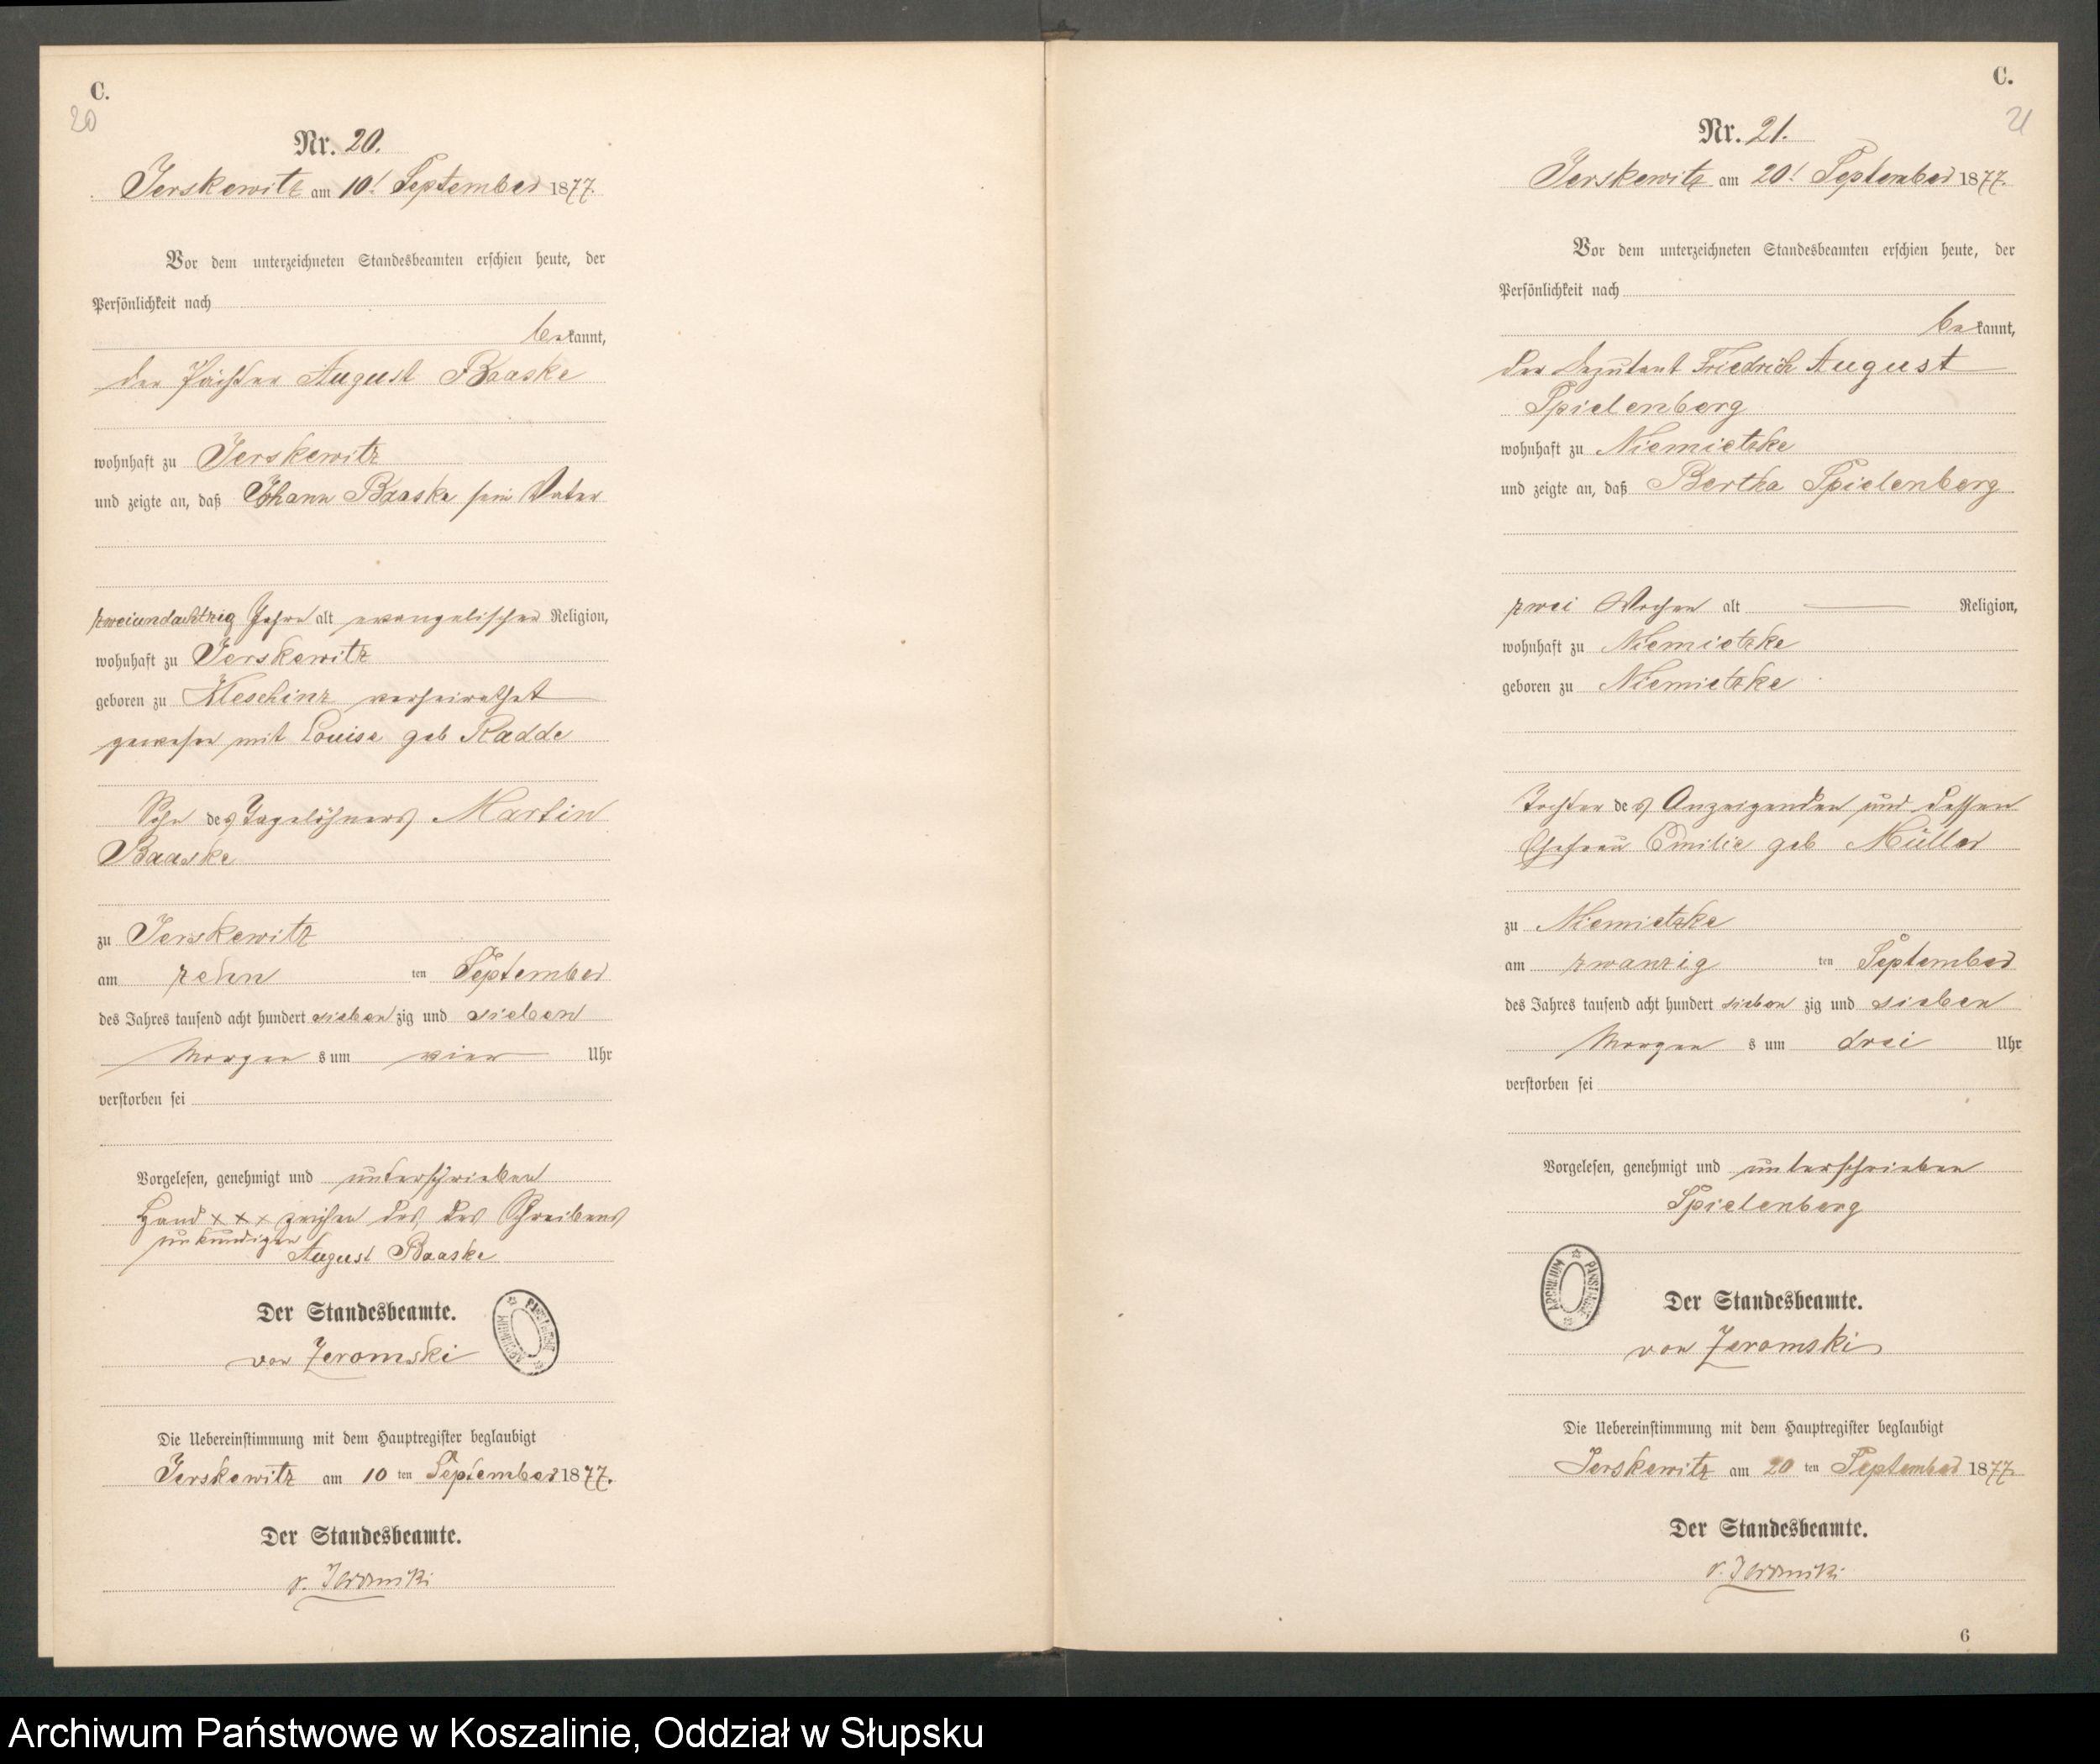 C.
20
Nr. 20.
Jerskewitz am 10t September 1877.
Vor dem unterzeichneten Standesbeamten erschien heute, der
Persönlichkeit nach
bekannt,
der Pächter August Baaske
wohnhaft zu Jerskewitz
und zeigte an, daß Johann Baaske sein Vater
zweiundachtzig Jahre alt evangelischer Religion,
wohnhaft zu Jerskewitz
geboren zu Kleschinz verheirathet
gewesen mit Louise geb Radde
Sohn des Tagelöhners Martin
Baaske
zu Jerskewitz
am zehn ten September
des Jahres tausend acht hundert siebenzig und sieben
Morgens um vier Uhr
verstorben sei
Vorgelesen, genehmigt und unterschrieben
Hand xxx zeichen des des Schreibens
unkundigen
August Baaske
Der Standesbeamte.
von Zeromski
ARCHIWUM PAŃSTWOWE
Die Uebereinstimmung mit dem Hauptregister beglaubigt
Jerskewitz am 10 ten September 1877.
Der Standesbeamte.
v. Zeromski
C.
21
Nr. 21.
Jerskewitz am 20t September 1877.
Vor dem unterzeichneten Standesbeamten erschien heute, der
Persönlichkeit nach
bekannt,
der Deputant Friedrich August
Spielenberg
wohnhaft zu Niemietzke
und zeigte an, daß Bertha Spielenberg
zwei Wochen alt — Religion,
wohnhaft zu Niemietzke
geboren zu Niemietzke
Tochter des Anzeigenden und dessen
Ehefrau Emilie geb Müller
zu Niemietzke
am zwanzig ten September
des Jahres tausend acht hundert siebenzig und sieben
Morgens um drei Uhr
verstorben sei
Vorgelesen, genehmigt und unterschrieben
Spielenberg
ARCHIWUM PAŃSTWOWE
Der Standesbeamte.
von Zeromski
Die Uebereinstimmung mit dem Hauptregister beglaubigt
Jerskewitz am 20 ten September 1877.
Der Standesbeamte.
v. Zeromski
6
Archiwum Państwowe w Koszalinie, Oddział w Słupsku